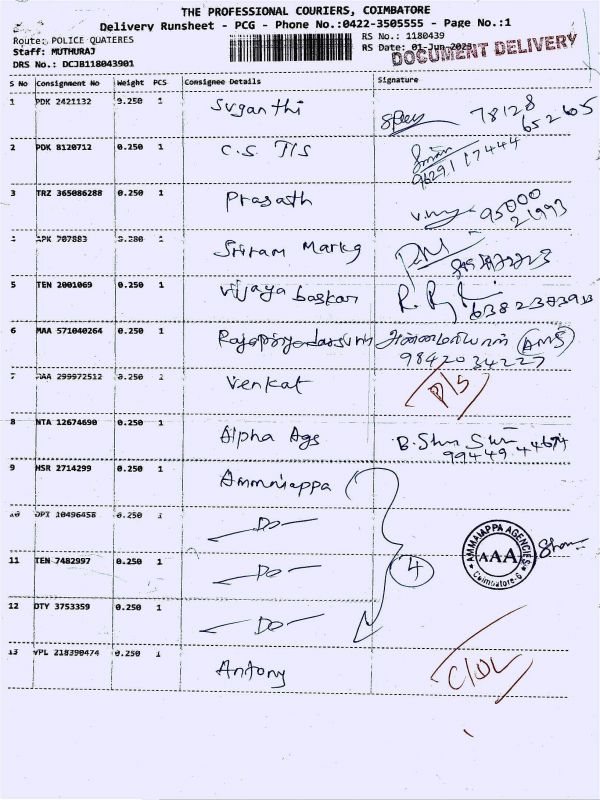 THE PROFESSIONAL COURIERS, COIMBATORE
Delivery Runsheet - PCG - Phone No.:0422-3505555 - Page No.:1
Route: POLICE QUATERES
RS No.: 1180439
Staff: MUTHURAJ
RS Date: 01-Jun-2023
DOCUMENT DELIVERY
DRS No.: DCJB118043901
S No Consignment No Weight PCS Consignee Details Signature
1 PDK 2421132 0.250 1 Suganthi 78128
652605
2 PDK 8120712 0.250 1 C.S. T/S
9629117444
3 TRZ 365086288 0.250 1 Prasath 95000
21993
4 APK 707883 0.280 1 Sriram Markg
5 TEN 2001069 0.250 1 Vijaya baskar
6 MAA 571040264 0.250 1 (AMS)
9842034227
7 MAA 299972512 0.250 1 Venkat P/S
8 NTA 12674690 0.250 1 Alpha Ags B.
99449 44674
9 HSR 2714299 0.250 1 Ammaiappa
10 OPT 10496458 0.250 1 Do
11 TEN 7482997 0.250 1 Do 4
12 DTY 3753359 0.250 1 Do
AMMAIAPPA AGENCIES
AAA
Coimbatore-6
13 VPL 218390474 0.250 1 Antony C/DL